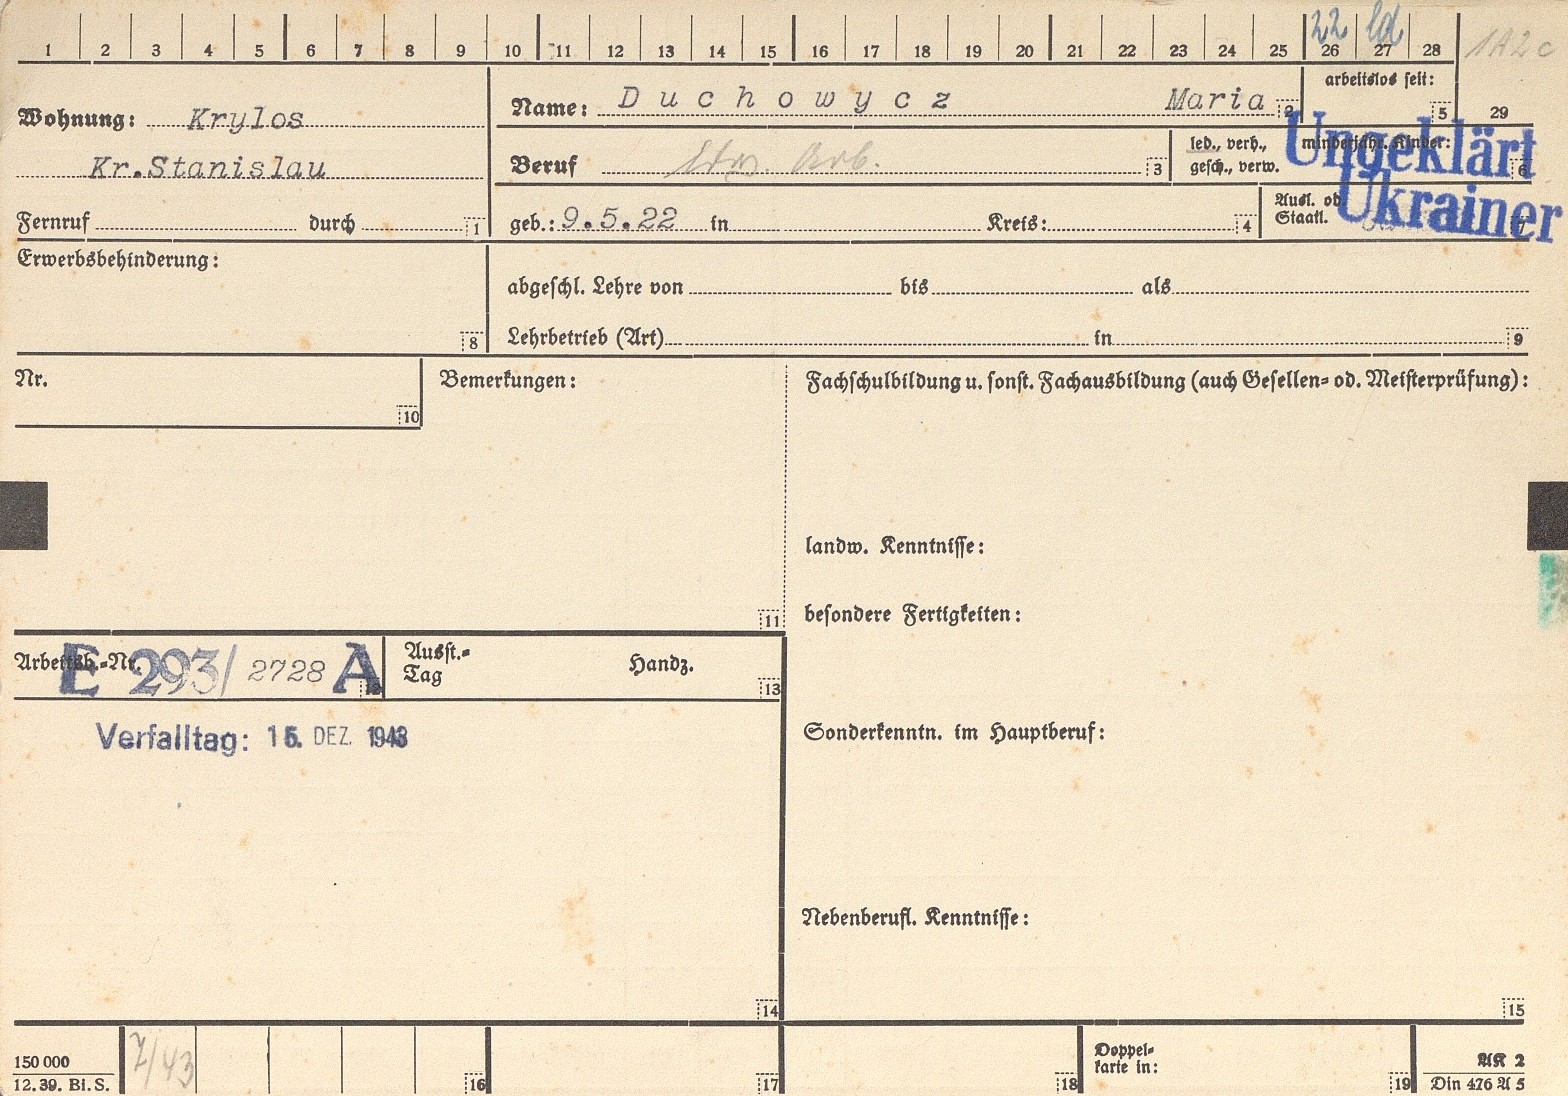 1 2 3 4 5 6 7 8 9 10 11 12 13 14 15 16 17 18 19 20 21 22 23 24 25 26 27 28
22 ld 1A2c
Wohnung: Krylos
Kr.Stanislau
Fernruf durch 1
Name: Duchowycz Maria 2
arbeitslos seit:
5 29
Beruf 3
led., verh.,
gesch., verw.
minderjähr. Kinder:
6
Ungeklärt
Ukrainer
geb.: 9.5.22 in Kreis: 4
Ausl. od.
Staatl.
7
Erwerbsbehinderung:
8
abgeschl. Lehre von bis als
Lehrbetrieb (Art) in 9
Nr.
10
Bemerkungen:
11
Fachschulbildung u. sonst. Fachausbildung (auch Gesellen- od. Meisterprüfung):
landw. Kenntnisse:
besondere Fertigkeiten:
Arbeitsb.-Nr.
E 293/2728 A
12
Ausst.-
Tag
Handz.
13
Verfalltag: 15. DEZ. 1943
14
Sonderkenntn. im Hauptberuf:
Nebenberufl. Kenntnisse:
15
150 000
12. 39. Bl. S.
7/43
16 17 18
Doppel-
karte in:
19
AK 2
Din 476 A 5